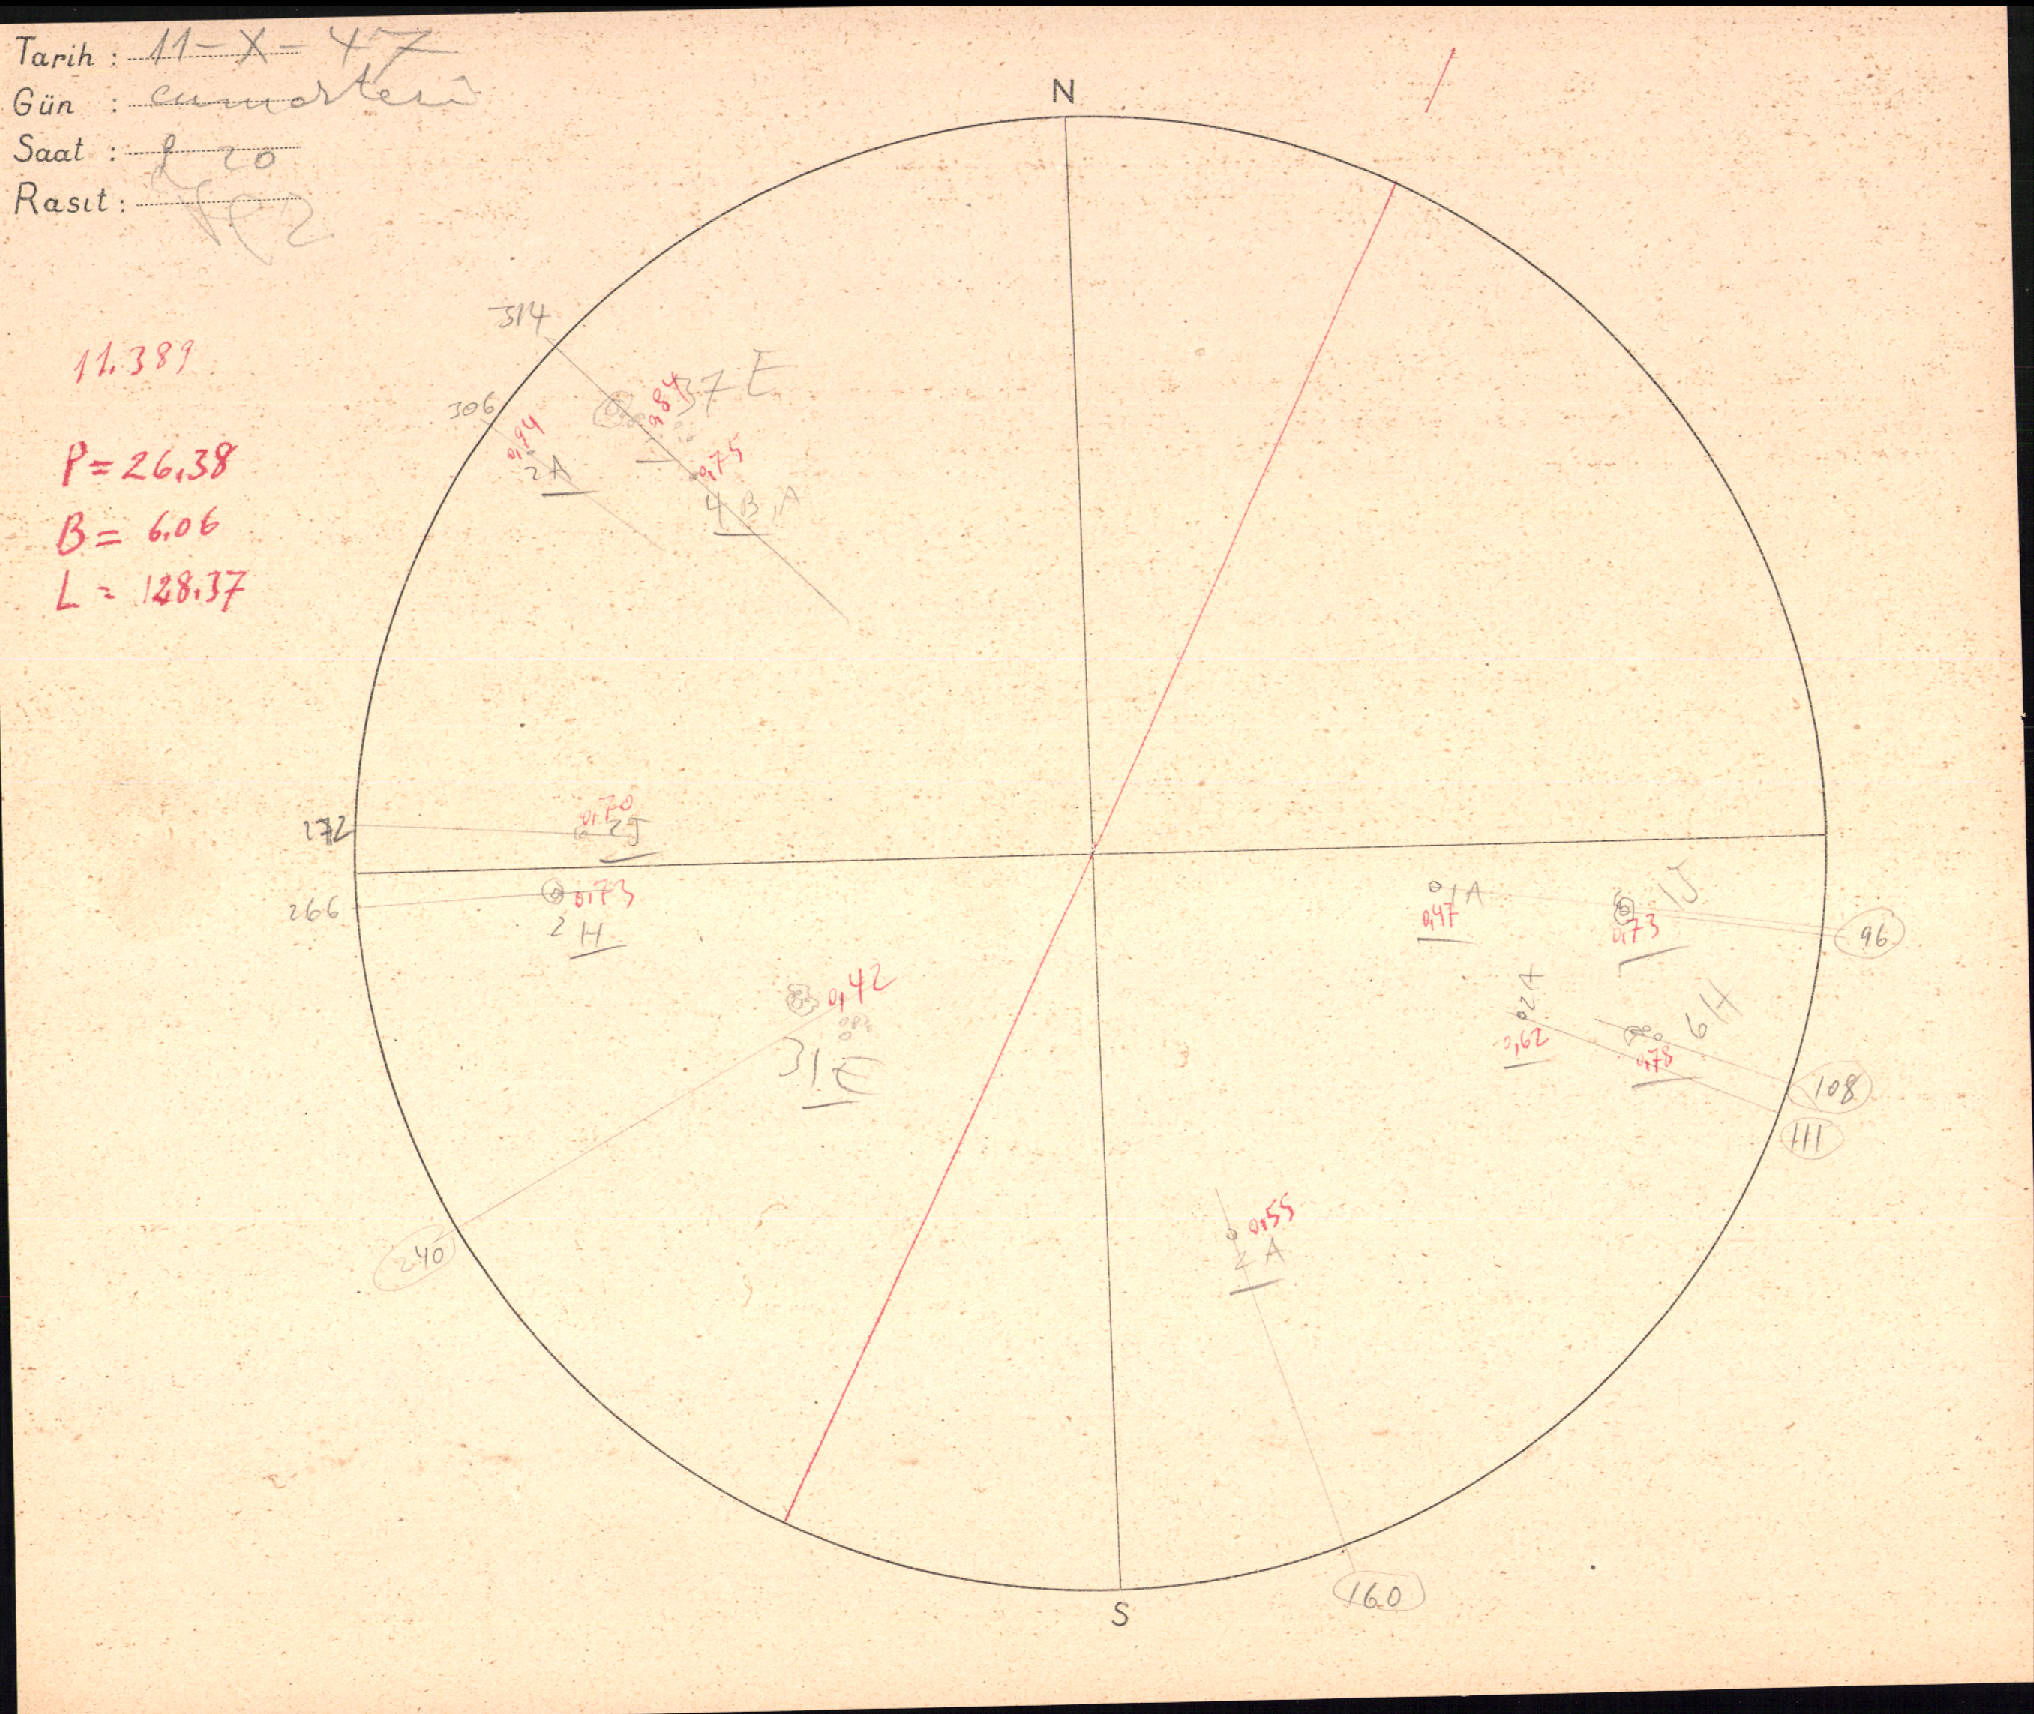 Tarih : 11-X-47
Gün : cumartesi
Saat : 20
Rasıt :
N
314
37 E
0,84
306
0,94
2A
0,75
4 B,A
11.389
P = 26,38
B = 6.06
L = 128.37
272
0,70
2J
266
0,73
2 H
1A
0,47
1J
0,73
96
2A
0,62
6 H
0,78
108
111
0,42
31 E
240
0,55
2 A
160
S